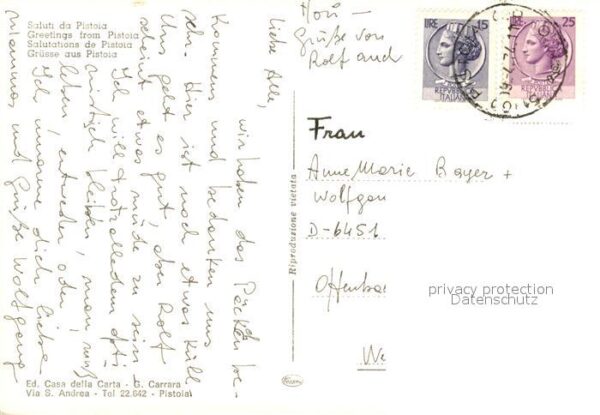 Saluti da Pistoia
Greetings from Pistoia
Salutations de Pistoia
Grüsse aus Pistoia
liebe Alle,
wir haben das Päckchen be-
kommen und bedanken uns
sehr. Hier ist noch etwas kühl.
Uns geht es gut, aber Rolf
scheint etwas müde zu sein
Ich will trotz alledem opti-
mistisch bleiben, man muß
leben, entweder oder!
Ich umarme dich liebe
Mamma, und Grüße Wolfgang
Grüße von
Rolf auch
LIRE 15
REPVBBLICA
ITALIANA
LIRE 25
REPVBBLICA
ITALIANA
Riproduzione vietata
Frau
Anne Marie Bayer +
Wolfgan
D-6451
Offenba
We
privacy protection
Datenschutz
Ed. Casa della Carta - G. Carrara
Via S. Andrea - Tel 22.642 - Pistoia